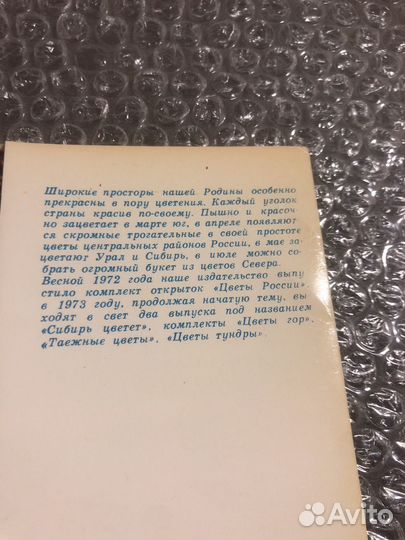 Широкие просторы нашей Родины особенно
прекрасны в пору цветения. Каждый уголок
страны красив по-своему. Пышно и красоч-
но зацветает в марте юг, в апреле появляют
ся скромные трогательные в своей простоте
цветы центральных районов России, в мае за-
цветают Урал и Сибирь, в июле можно со-
брать огромный букет из цветов Севера.
Весной 1972 года наше издательство выпу
стило комплект открыток «Цветы России»
в 1973 году, продолжая начатую тему, вы
ходят в свет два выпуска под названием
«Сибирь цветет», комплекты «Цветы гор»,
«Таежные цветы», «Цветы тундры»
Avito